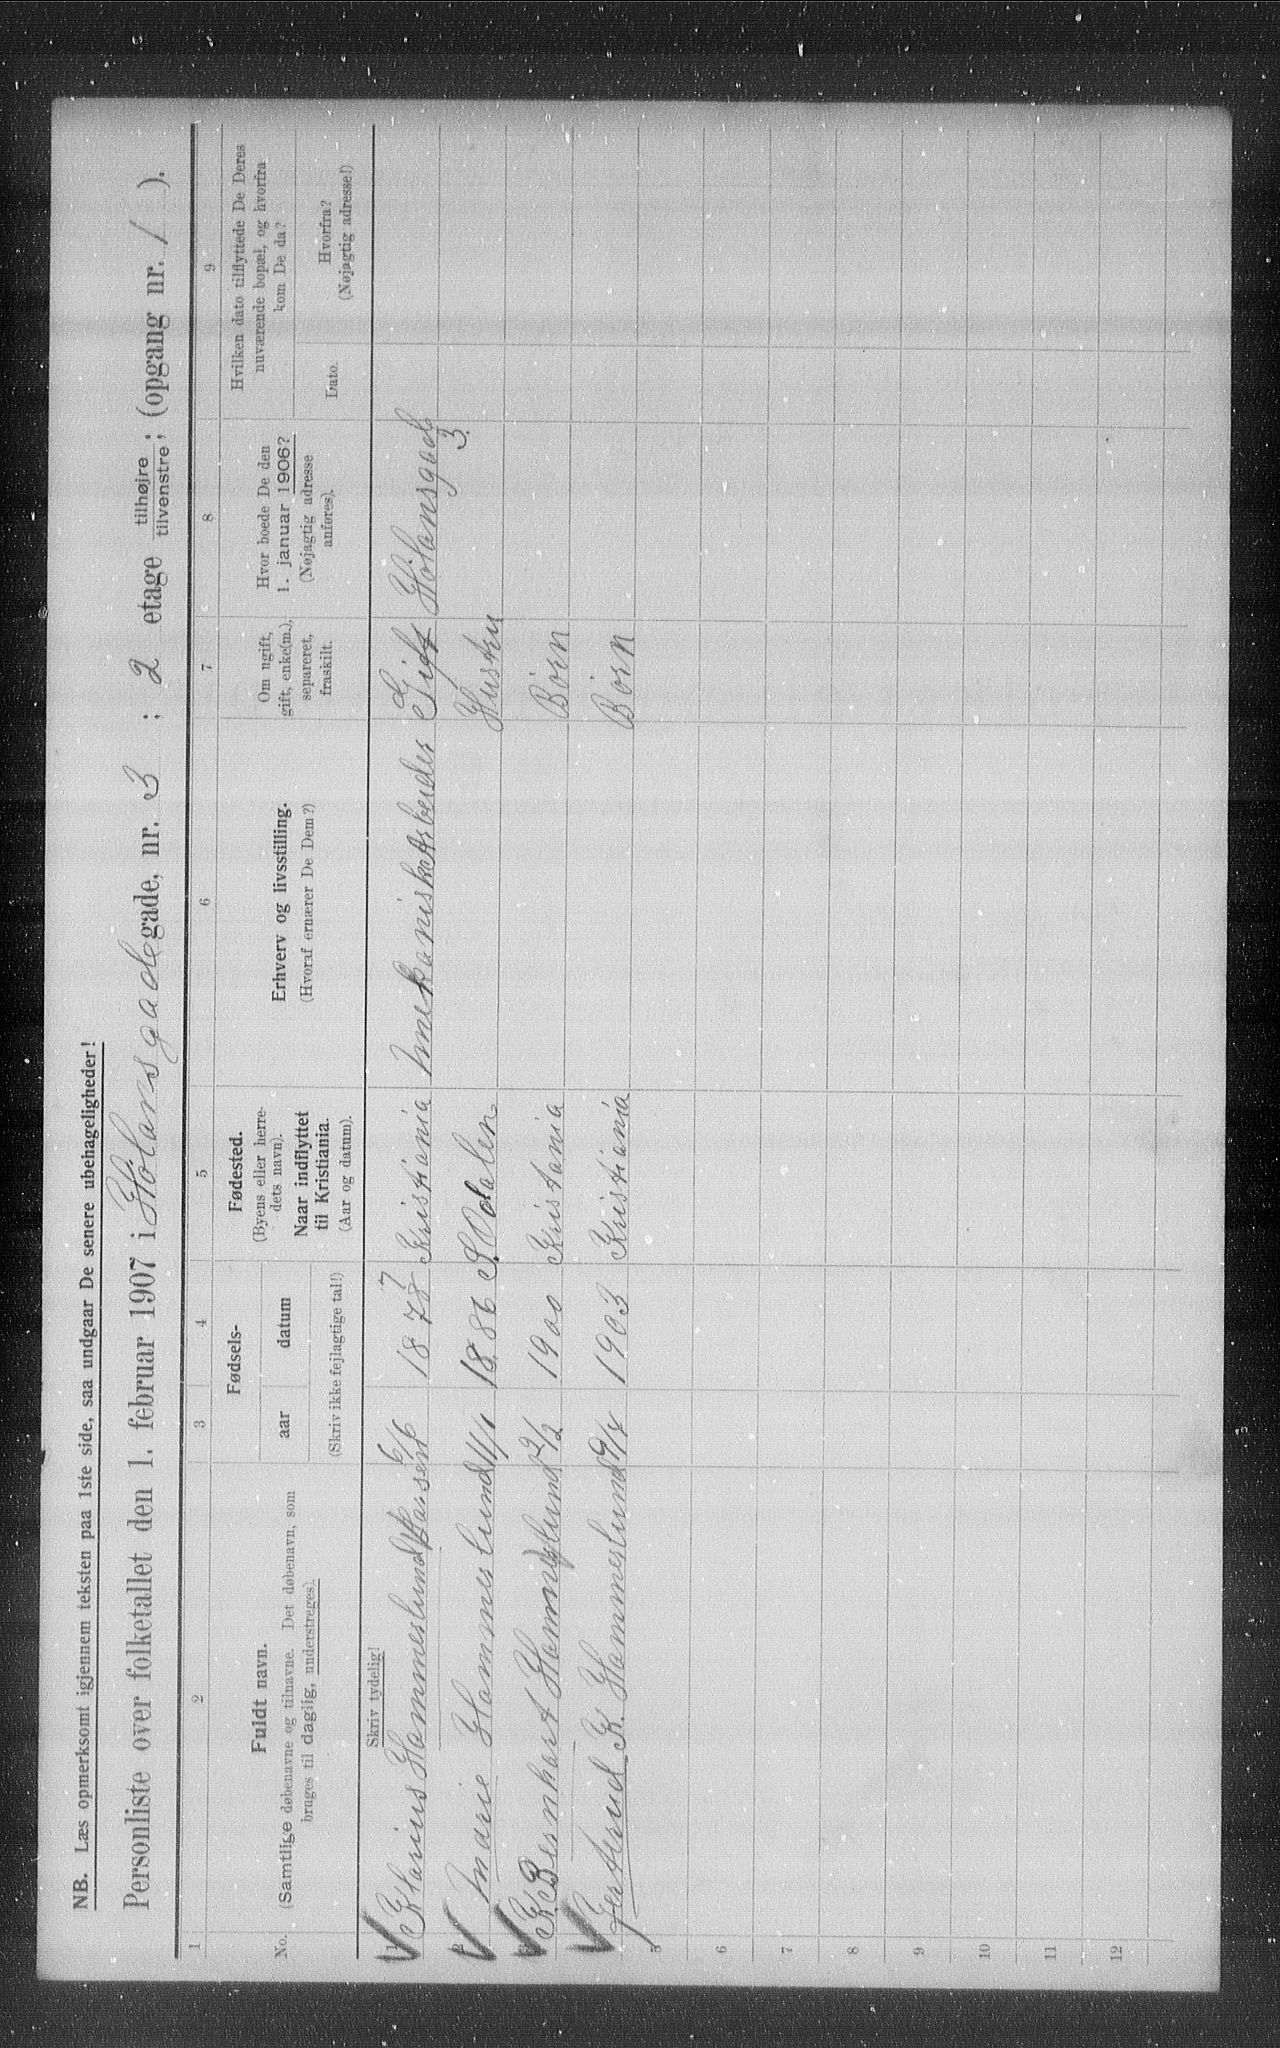 NB. Læs opmerksomt igjennem teksten paa 1ste side, saa undgaar De senere ubehageligheder!
Personliste over folketallet den 1. februar 1907 i Hölansgade gade, nr. 3 ; 2 etage tilhøjre tilvenstre ; (opgang nr. 1 ).
1 2 3 4 5 6 7 8 9
No.
Fuldt navn.
(Samtlige døbenavne og tilnavne. Det døbenavn, som
bruges til daglig, understreges).
Fødsels-
aar datum
(Skriv ikke fejlagtige tal!)
Fødested.
(Byens eller herre-
dets navn).
Naar indflyttet
til Kristiania.
(Aar og datum).
Erhverv og livsstilling.
(Hvoraf ernærer De Dem?)
Om ugift,
gift, enke(m.),
separeret,
fraskilt.
Hvor boede De den
1. januar 1906?
(Nøjagtig adresse
anføres).
Hvilken dato tilflyttede De Deres
nuværende bopæl, og hvorfra
kom De da?
Dato.
Hvorfra?
(Nøjagtig adresse!)
Skriv tydelig!
1 Klarius Hammerlund 6/6 1878 7 Kristiania Mekaniskarbeider Gift Hölansgade 3.
Marie Hammerlund 11/1 1886 S. Odalen Hustru
K Bernhart Hammerlund 2/2 1900 Kristania Börn
Gertrud K. Hammerlund 9/8 1903 Kristiania Börn
5
6
7
8
9
10
11
12